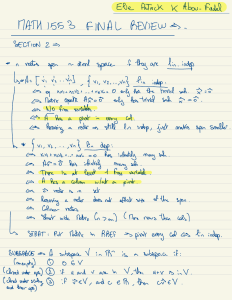 Elie Atack & Abou-Fadel
MATH 1553 FINAL REVIEW
SECTION 2
n vectors span n dim'l space if they are lin. indep.
{v1, v2, ..., vn} lin. indep.
x1v1 + x2v2 + ... = 0 only has the trivial sol.
Matrix equat. Ax = 0 only has trivial sol.
No free variable.
A has a pivot in every col.
Removing a vector is still lin. indep, just smaller span
{v1, v2, ..., vn} lin. dep.
x1v1 + x2v2 + ... = 0 has infinitely many sol.
Ax = 0 has infinitely many sol.
There is at least 1 free variable.
A has a column without a pivot
0 vector is in a set
Removing a vector does not affect size of the span
Colinear vectors
Short wide Matrix (n > m) (More rows than cols)
START: Put Matrix in RREF pivot every col are lin indep.
SUBSPACE A subspace V in R^n is a subspace if:
(nonempty) ① 0 ∈ V
(closed under add) ② if u and v are in V, then u+v is in V.
(closed under scalar and times) ③ if v ∈ V, and c ∈ R, then cv ∈ V